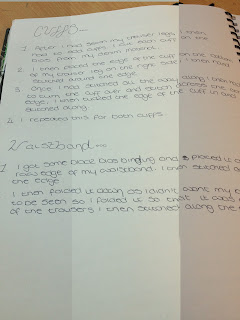 CUFFS -
1. After I had sewn my trouser legs, I then
had to add cuffs. I cut each cuff on the
bias from my denim material.
2. I then placed the edge of the cuff on the bottom
of my trouser leg on the right side. I then hand
stitched around the edge.
3. Once I had stitched all the way along I then had
to turn the cuff over and stitch across the other
edge, I then tucked the edge of the cuff in and
stitched along.
4. I repeated this for both cuffs.
Waistband -
1 I got some black bias binding and placed it on
raw edge of my waistband. I then stitched a
the edge.
I then folded it down as I didn't want my e
to be seen so I folded it so that it was o
of the trousers I then stitched along the